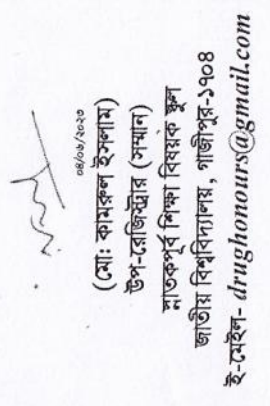 ০৪/০৬/২০২৩
(মো: কামরুল ইসলাম)
উপ-রেজিস্ট্রার (সম্মান)
স্নাতকপূর্ব শিক্ষা বিষয়ক স্কুল
জাতীয় বিশ্ববিদ্যালয়, গাজীপুর-১৭০৪
ই-মেইল- drughonours@gmail.com